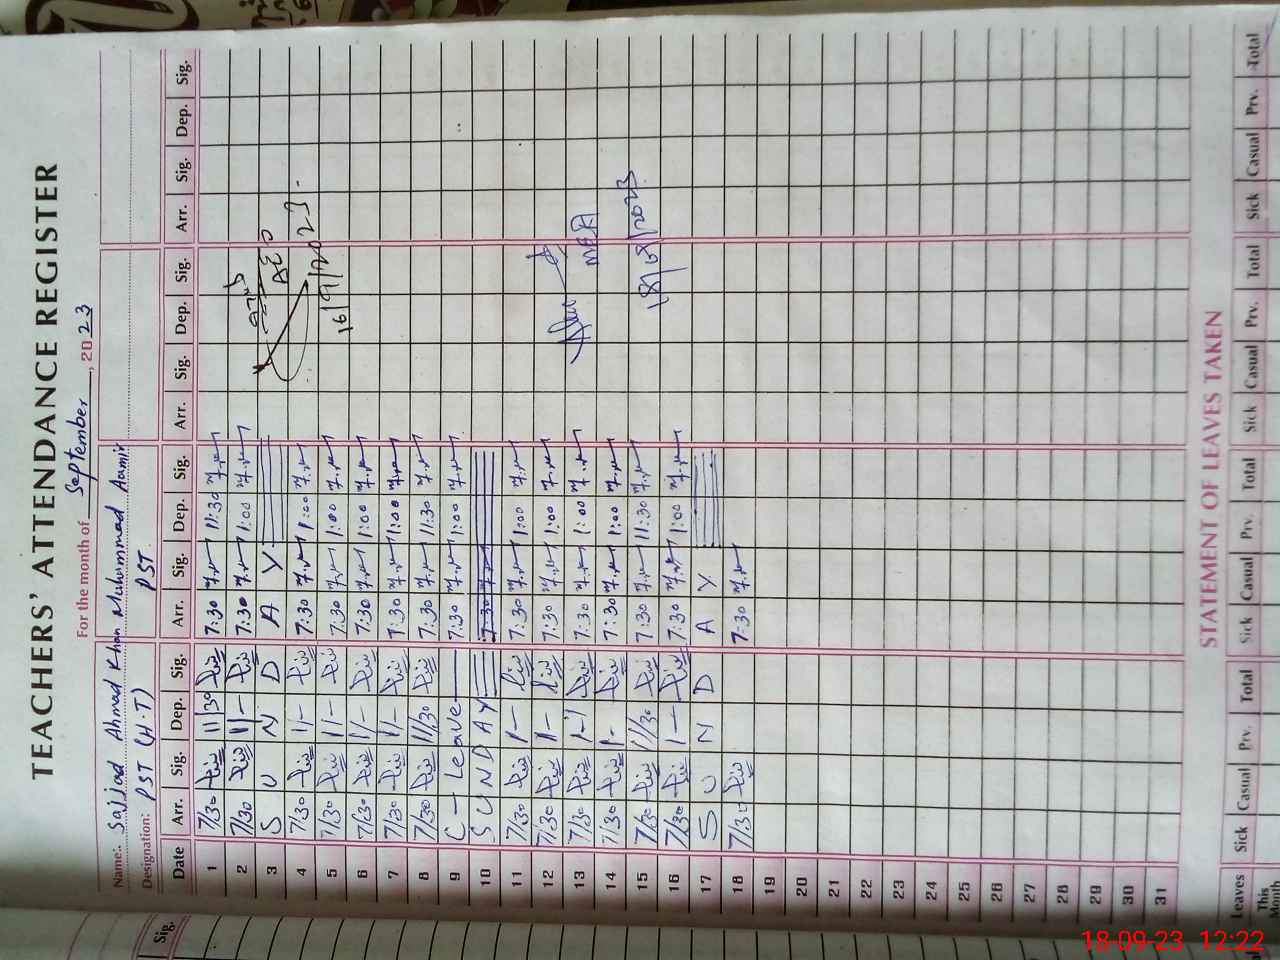 TEACHERS' ATTENDANCE REGISTER
For the month of September, 2023
Name: Sajjad Ahmad Khan Muhammad Aamir
Designation: PST (H.T) PST
Date Arr. Sig. Dep. Sig. Arr. Sig. Dep. Sig. Arr. Sig. Dep. Sig. Arr. Sig. Dep. Sig.
1 7/30 11/30 7:30 11:30
2 7/30 1/- 7:30 1:00
3 S U N D A Y
4 7/30 1/- 7:30 1:00
5 7/30 1/- 7:30 1:00
6 7/30 1/- 7:30 1:00
7 7/30 1/- 7:30 1:00
8 7/30 11/30 7:30 11:30
9 C - Leave 7:30 1:00
10 SUNDAY 7:30
11 7/30 1- 7:30 1:00
12 7/30 1- 7:30 1:00
13 7/30 1- 7:30 1:00
14 7/30 1- 7:30 1:00
15 7/30 11/30 7:30 11:30
16 7/30 1- 7:30 1:00
17 S U N D A Y
18 7/30 7:30
19
20
21
22
23
24
25
26
27
28
29
30
31
AEO
16/9/2023
MEA
18/09/2023
STATEMENT OF LEAVES TAKEN
Leaves Sick Casual Prv. Total Sick Casual Prv. Total Sick Casual Prv. Total Sick Casual Prv. Total
This Month
Sig.
18-09-23 12:22